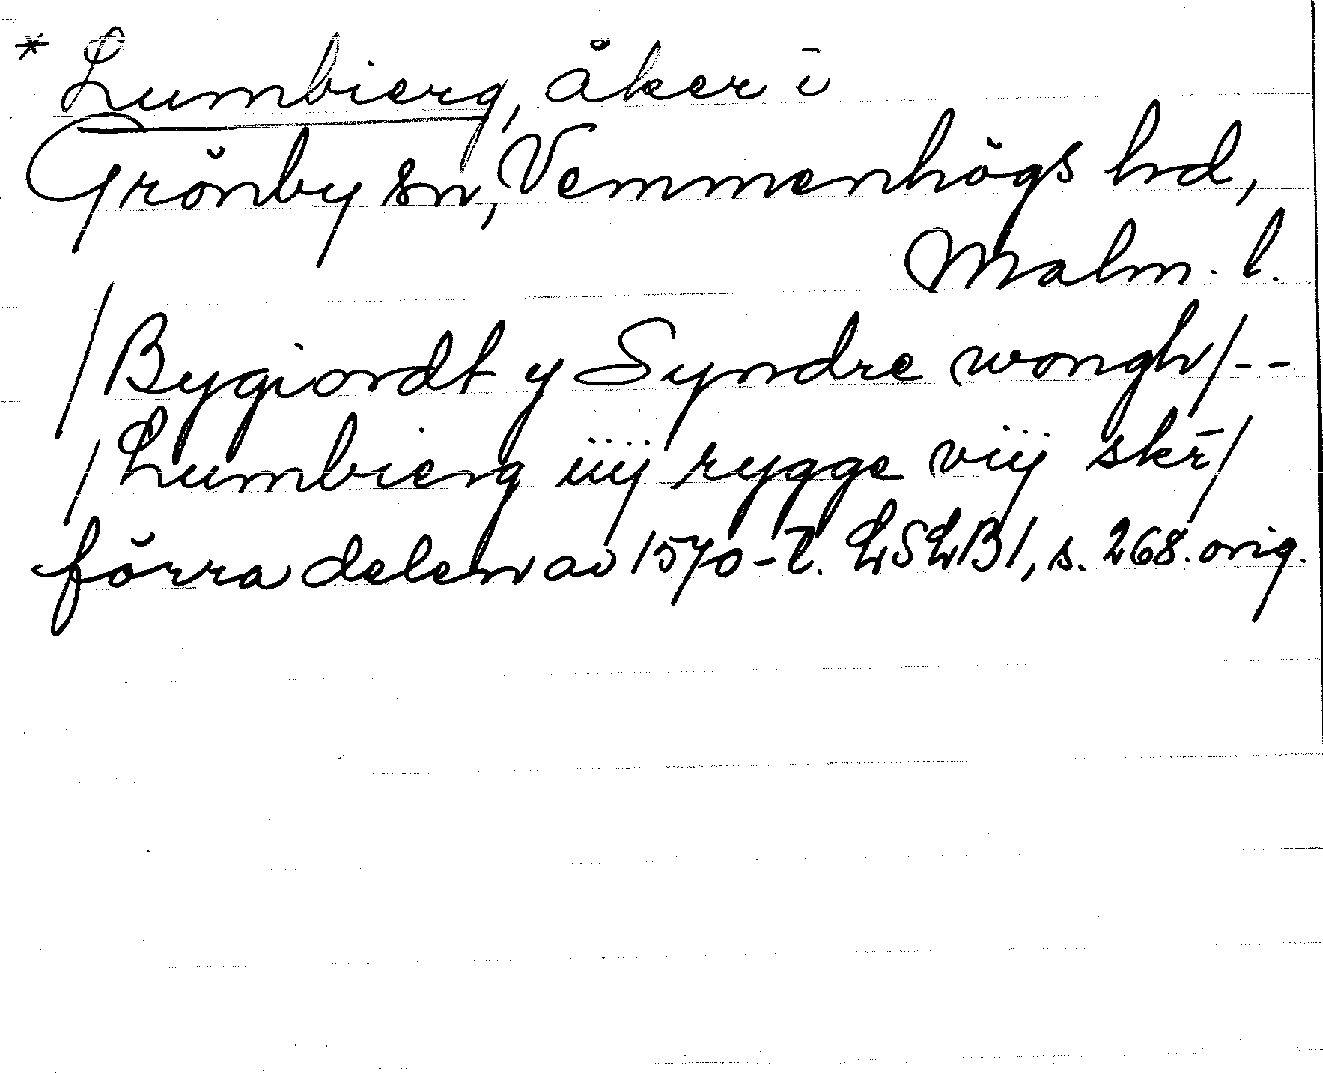 * Lumbierg, åker i
Grönby sn, Vemmenhögs hd,
Malm. l.
/Bygiordt y Syndre wongh/--
/Lumbierg iiij rygge viij skr/
förra delen av 1570-t. LSLB1, s. 268. orig.